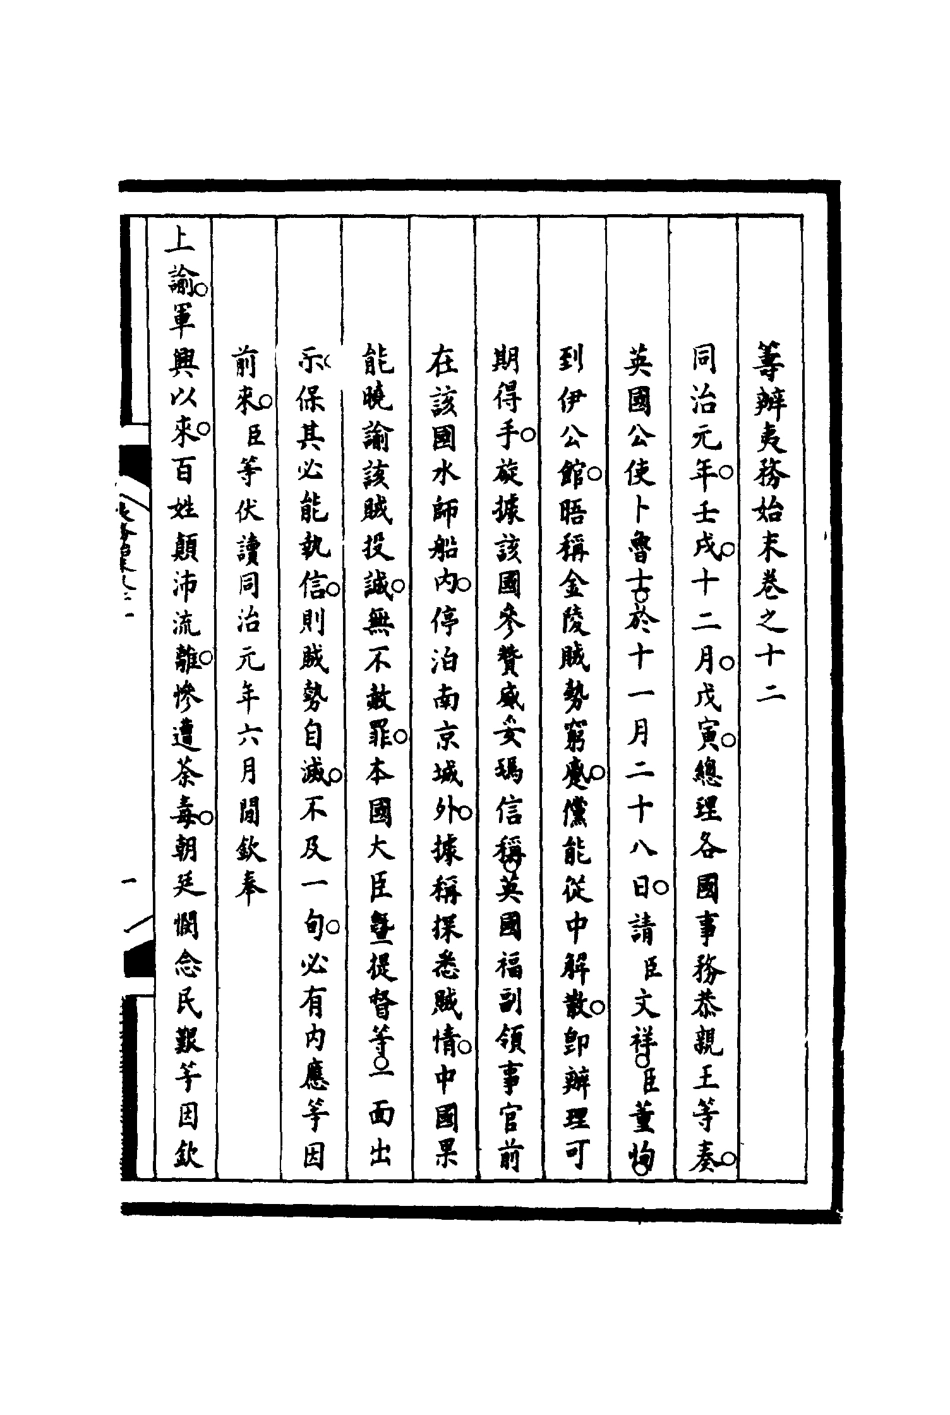 籌辦夷務始末卷之十二
同治元年。壬戌。十二月。戊寅。總理各國事務恭親王等奏。
英國公使卜魯士。於十一月二十八日。請臣文祥。臣董恂。
到伊公館。晤稱金陵賊勢窮蹙。儻能從中解散。卽辦理可
期得手。旋據該國參贊威妥瑪信稱。英國福副領事官前
在該國水師船內。停泊南京城外。據稱探悉賊情。中國果
能曉諭該賊投誠。無不赦罪。本國大臣曁提督等。一面出
示。保其必能執信。則賊勢自滅。不及一句。必有內應等因
前來。臣等伏讀同治元年六月間欽奉
上諭。軍興以來。百姓顛沛流離。慘遭荼毒。朝廷憫念民艱等因欽